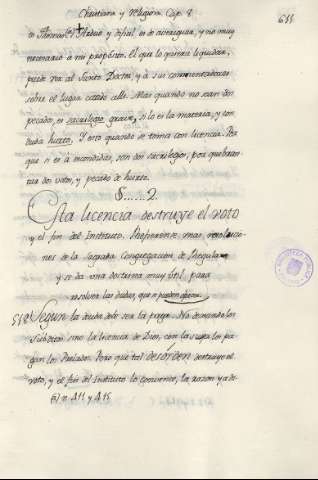 Christiana y Religiosa Cap. 8.
611
es dificil es de averiguar, y no muy
necesario à mi proposito. El que lo quisiere liquidar,
puede ver al Santo Doctor, y à sus comentadores
sobre el lugar citado alli. Mas quando no sean dos
pecados, es sacrilegio grave, si lo es la materia, y sin
duda hurto. Y esto quando se toma con licencia. Por
que si es à escondidas, son dos sacrilegios, por quebran-
tar dos votos, y pecado de hurto.
§.....2.
Esta licencia destruye el voto
y el fin del Instituto. Refierense unas resolucio-
nes de la Sagrada Congregacion de Regulares
y se da una doctrina muy util para
resolver las dudas, que se pueden ofrecer.
518 Segun la deuda debe ser la paga. No deviendo los
Subditos sino la licencia de Dios, con la suya los pa-
gan los Prelados. Pero que tal desórden destruye el
voto, y el fin del Instituto lo convence, la razon ya de-
n. 411 y 415